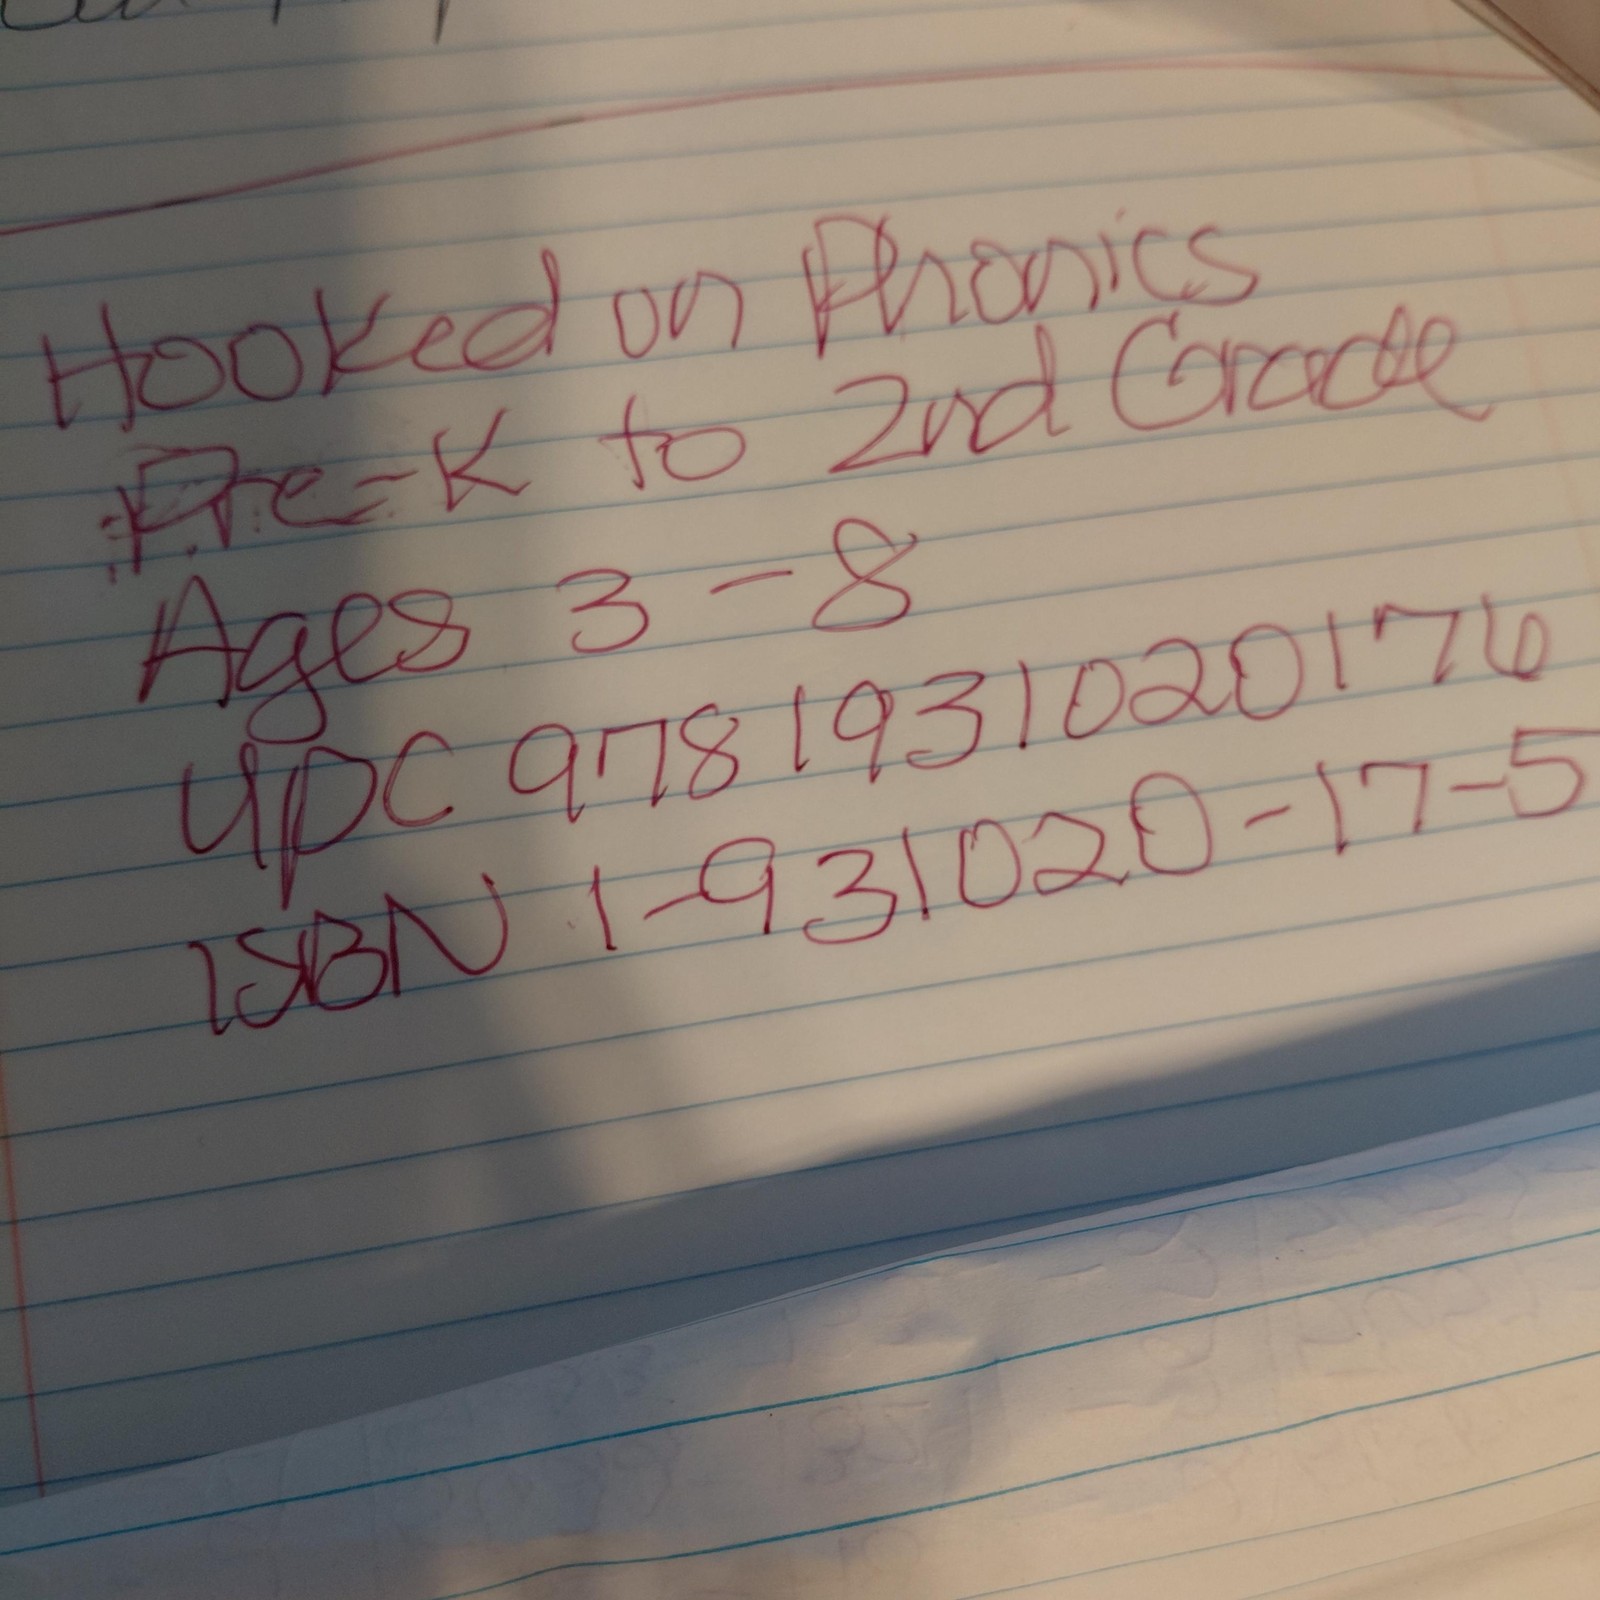 Hooked on Phonics
Pre-K to 2nd Grade
Ages 3-8
UPC 9781931020176
ISBN 1-931020-17-5